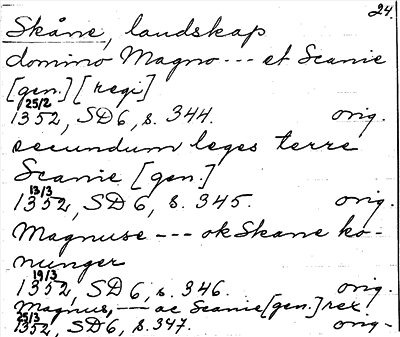 24.
Skåne, landskap
domino Magno --- et Scanie
[gen.] [regi]
25/2
1352, SD 6, s. 344. orig.
secundum leges terre
Scanie [gen.]
13/3
1352, SD 6, s. 345. orig.
Magnuse --- ok Skane ko-
nunger
19/3
1352, SD 6, s. 346. orig.
Magnus, --- ac Scanie [gen.] rex
25/3
1352, SD 6, s. 347. orig.